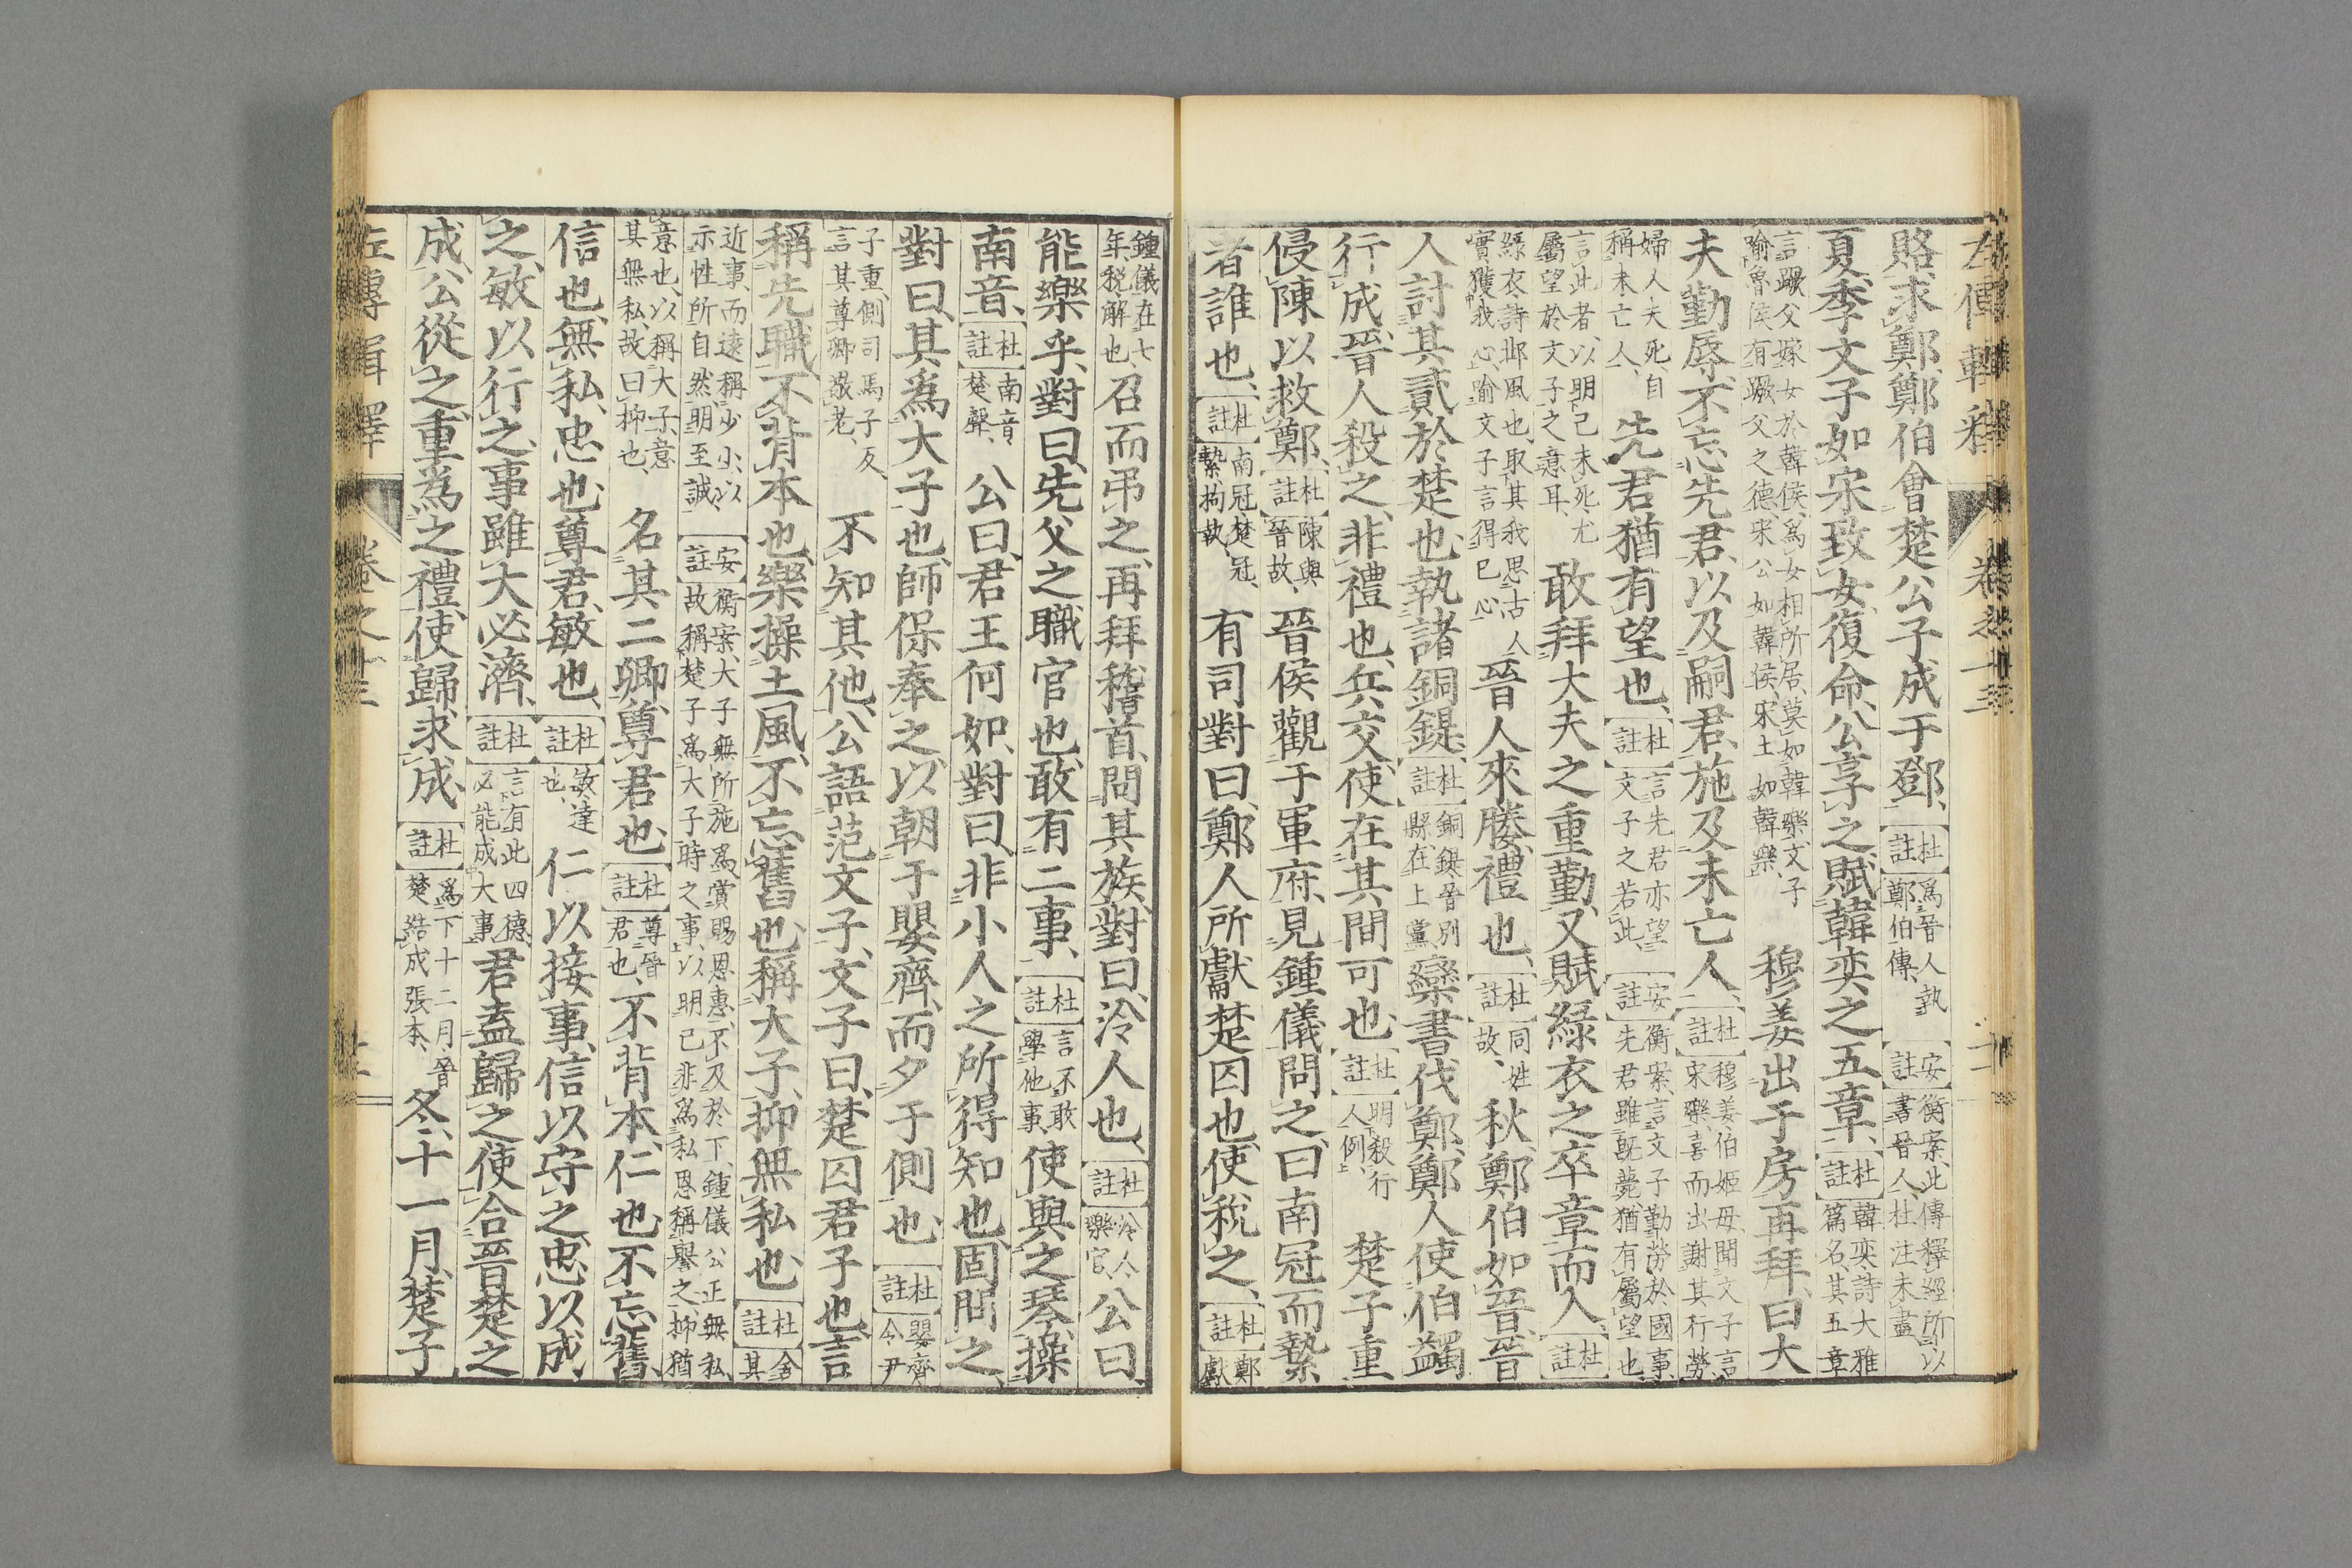 左傳輯釋 卷之十三
賂求鄭、鄭伯會楚公子成于鄧、杜註 爲晉人執鄭伯傳、安註 衡案、此傳釋經所以書晉人、杜注未盡
夏、季文子如宋致女、復命、公享之、賦韓奕之五章、杜註 韓奕、詩大雅篇名、其五章
言蹶父嫁女於韓侯、爲女相所居、莫如韓樂、文子喻魯侯有蹶父之德、宋公如韓侯、宋土如韓樂、穆姜出于房、再拜、曰、大
夫勤辱、不忘先君、以及嗣君、施及未亡人、杜註 穆姜、伯姬母、聞文子言宋樂、喜而出謝其行勞、
婦人夫死、自稱未亡人、先君猶有望也、杜註 言先君亦望文子之若此、安註 衡案、言文子勤勞於國事、先君雖既薨、猶有屬望也、
言此者、以明己未死、尤屬望於文子之意耳、敢拜大夫之重勤、又賦綠衣之卒章而入、杜註
綠衣、詩邶風也、取其我思古人、實獲我心、喻文子言得己心、晉人來媵、禮也、杜註 同姓故、秋、鄭伯如晉、晉
人討其貳於楚也、執諸銅鞮、杜註 銅鞮、晉別縣、在上黨、欒書伐鄭、鄭人使伯蠲
行成、晉人殺之、非禮也、兵交、使在其間可也、杜註 明殺行人例、楚子重
侵陳以救鄭、杜註 陳與晉故、晉侯觀于軍府、見鍾儀、問之曰、南冠而縶
者誰也、杜註 南冠、楚冠、縶、拘執、有司對曰、鄭人所獻楚囚也、使稅之、杜註 鄭獻
鍾儀在七年、稅、解也、召而弔之、再拜稽首、問其族、對曰、泠人也、杜註 泠人、樂官、公曰、
能樂乎、對曰、先父之職官也、敢有二事、杜註 言不敢學他事、使與之琴、操
南音、杜註 南音、楚聲、公曰、君王何如、對曰、非小人之所得知也、固問之、
對曰、其爲大子也、師保奉之、以朝于嬰齊、而夕于側也、杜註 嬰齊、令尹
子重、側、司馬子反、言其尊卿敬老、不知其他、公語范文子、文子曰、楚囚君子也、言
稱先職、不背本也、樂操土風、不忘舊也、稱大子、抑無私也、杜註 舍其
近事、而遠稱少小、以示性所自然、明至誠、安註 衡案、大子無所施爲、賞賜恩惠、不及於下、鍾儀公正無私、故稱楚子爲大子時之事、以明己非爲私恩稱譽之、抑猶
意也、以稱大子、意其無私、故曰抑也、名其二卿、尊君也、杜註 尊晉君也、不背本、仁也、不忘舊、
信也、無私、忠也、尊君、敏也、杜註 敏、達也、仁以接事、信以守之、忠以成
之、敏以行之、事雖大必濟、杜註 言有此四德、必能成大事、君盍歸之、使合晉楚之
成、公從之、重爲之禮、使歸求成、杜註 爲下十二月、晉楚結成張本、冬、十一月、楚子
左傳輯釋 卷之十三